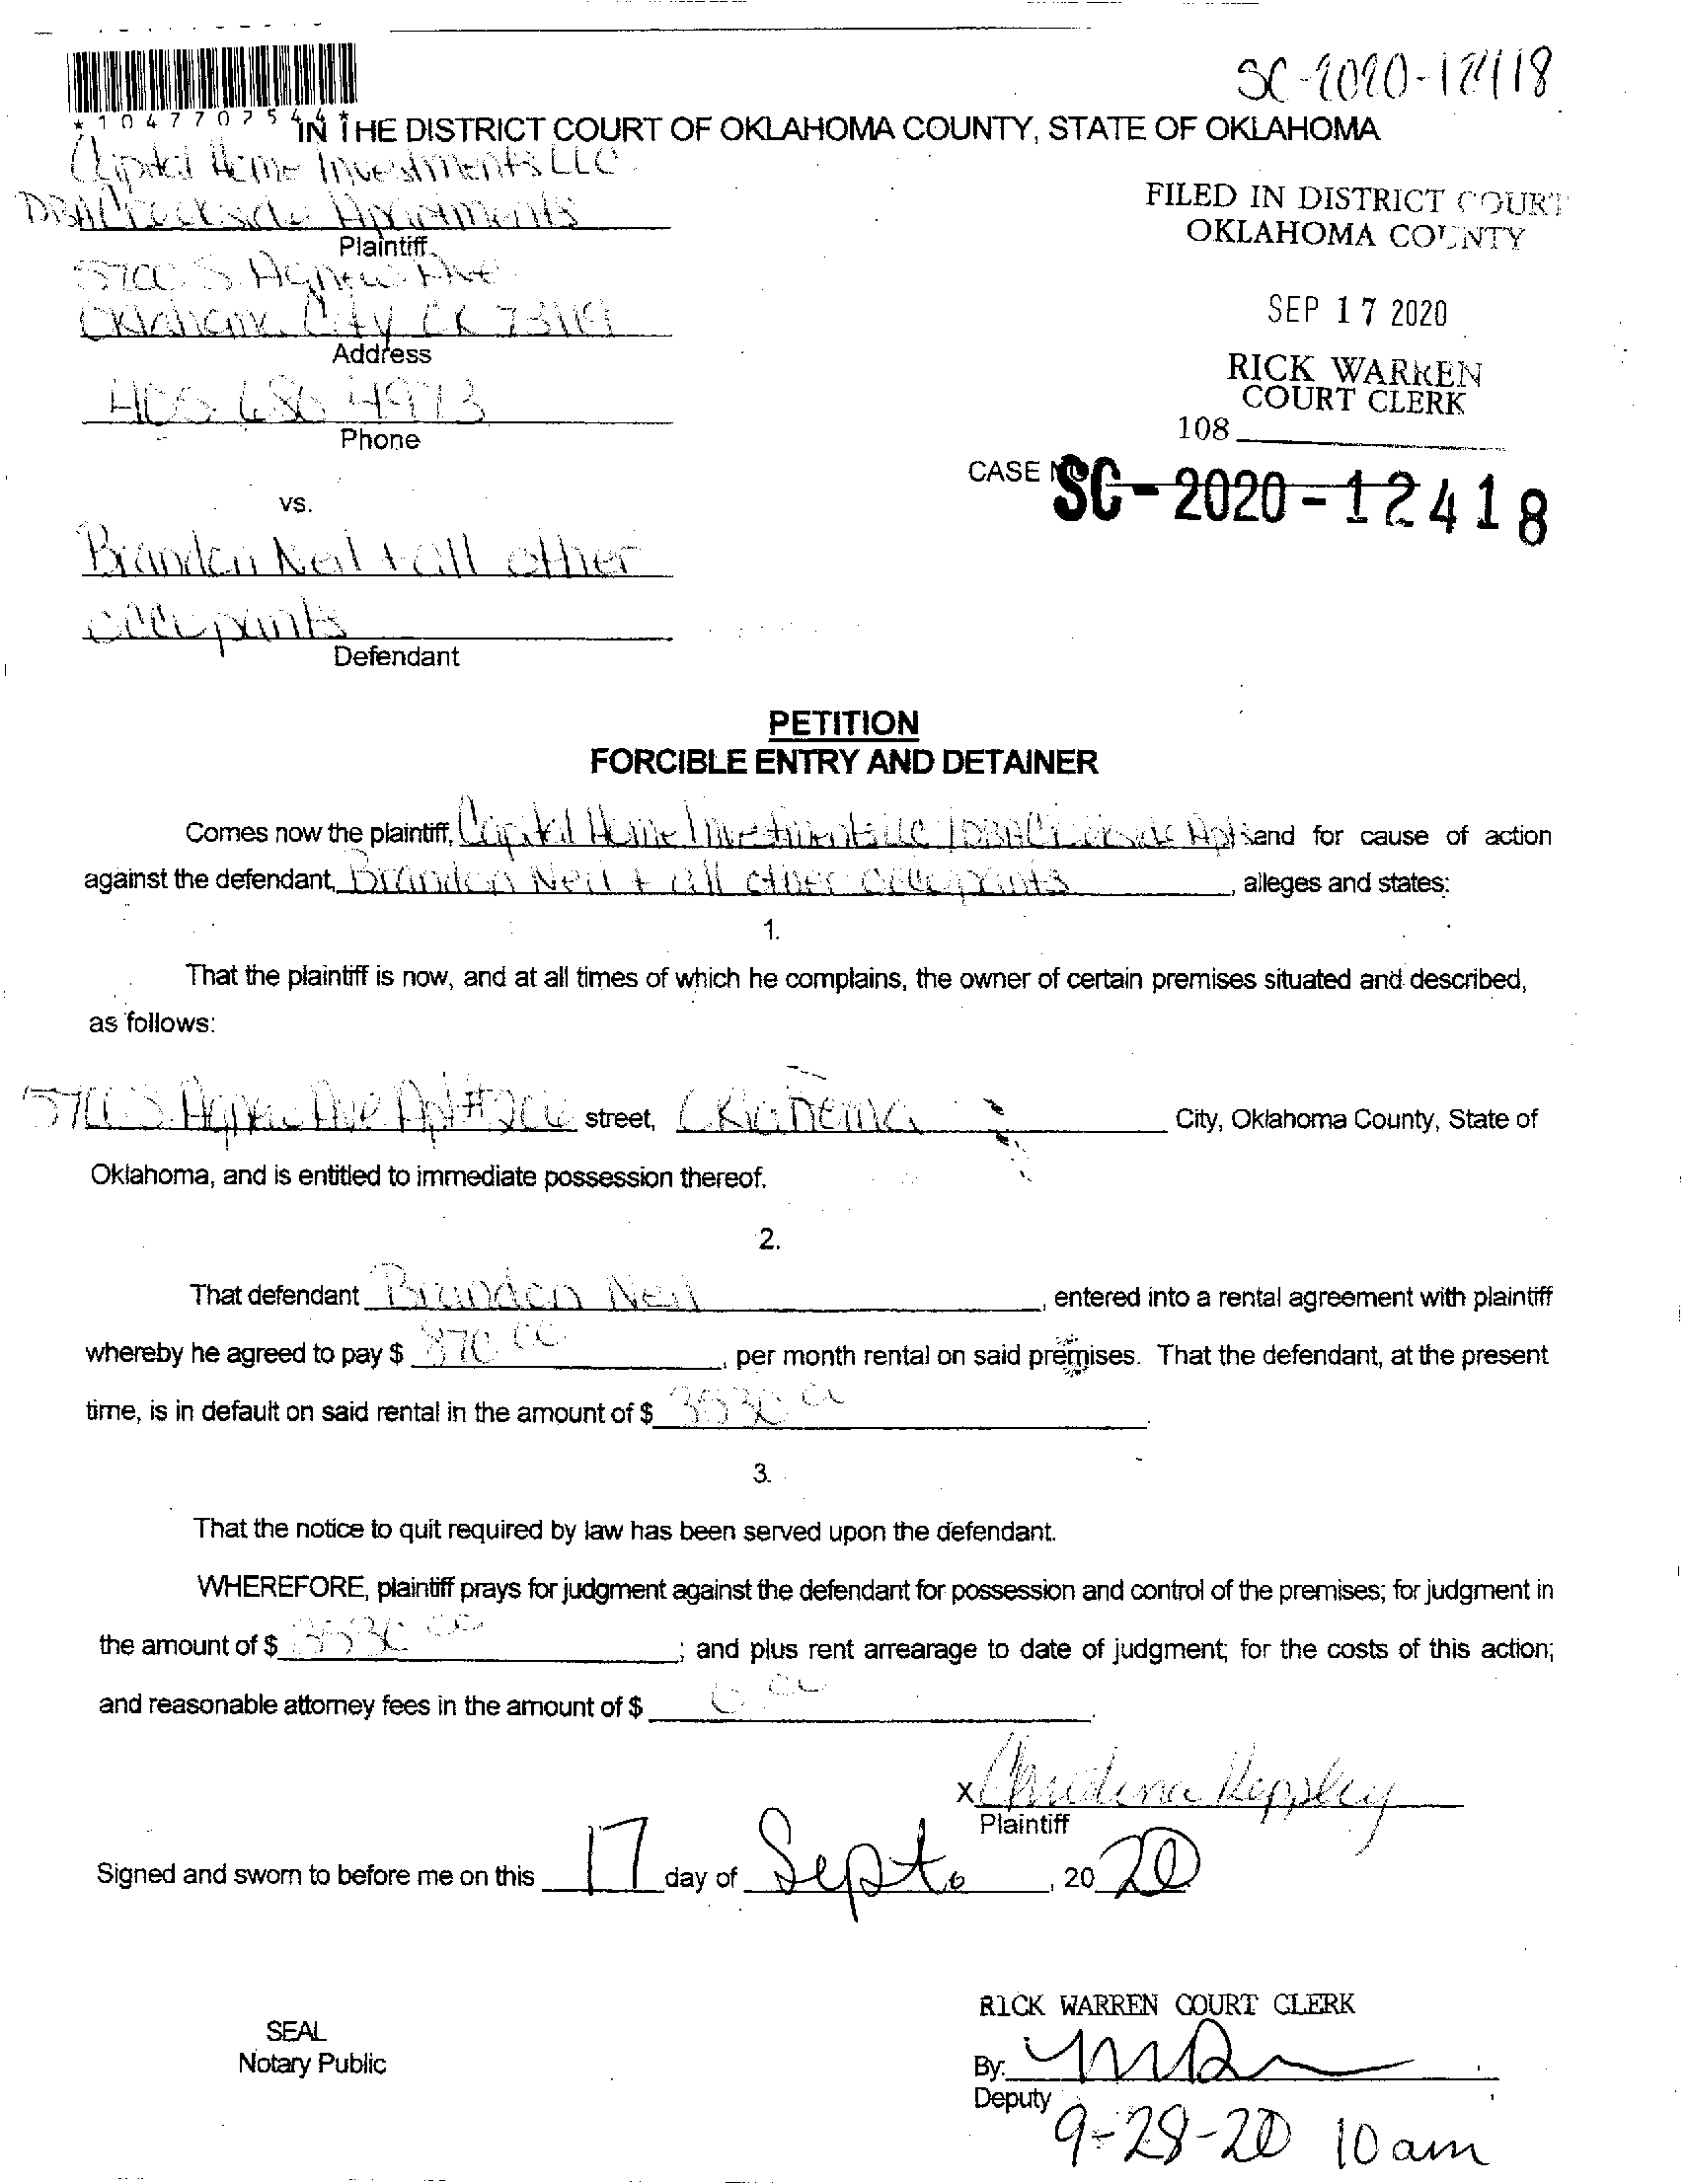 SC-2020-12418
*1047707544*
IN THE DISTRICT COURT OF OKLAHOMA COUNTY, STATE OF OKLAHOMA
Capital Home Investments LLC
DBA Creekside Apartments
Plaintiff
FILED IN DISTRICT COURT
OKLAHOMA COUNTY
5700 S. Agnew Ave
Oklahoma City OK 73119
Address
SEP 17 2020
RICK WARREN
COURT CLERK
405 686 4973
Phone
108
CASE NO
SC-2020-12418
vs.
Brandon Neil + all other
occupants
Defendant
PETITION
FORCIBLE ENTRY AND DETAINER
Comes now the plaintiff, Capital Home Investments LLC / DBA Creekside Apts and for cause of action
against the defendant, Brandon Neil + all other occupants, alleges and states:
1.
That the plaintiff is now, and at all times of which he complains, the owner of certain premises situated and described,
as follows:
5700 S. Agnew Ave Apt# street, Oklahoma City, Oklahoma County, State of
Oklahoma, and is entitled to immediate possession thereof.
2.
That defendant Brandon Neil, entered into a rental agreement with plaintiff
whereby he agreed to pay $ 00, per month rental on said premises. That the defendant, at the present
time, is in default on said rental in the amount of $ 3530 00
3.
That the notice to quit required by law has been served upon the defendant.
WHEREFORE, plaintiff prays for judgment against the defendant for possession and control of the premises; for judgment in
the amount of $ 3530 00; and plus rent arrearage to date of judgment; for the costs of this action;
and reasonable attorney fees in the amount of $ 0 00.
x Christina
Plaintiff
Signed and sworn to before me on this 17 day of Septe, 20 20
RICK WARREN COURT CLERK
SEAL
Notary Public
By:
Deputy
9-28-20 10 am